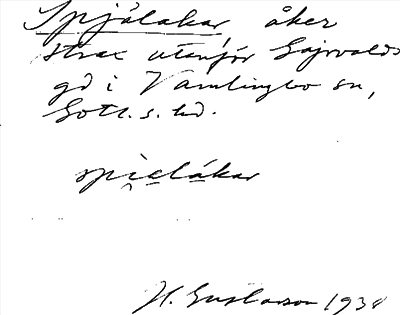 Spjålakar, åker
strax utanför Gajrvalds
gd i Vamlingbo sn,
Gotl. s. hd.
spìelákar
H. Gustavson 1938